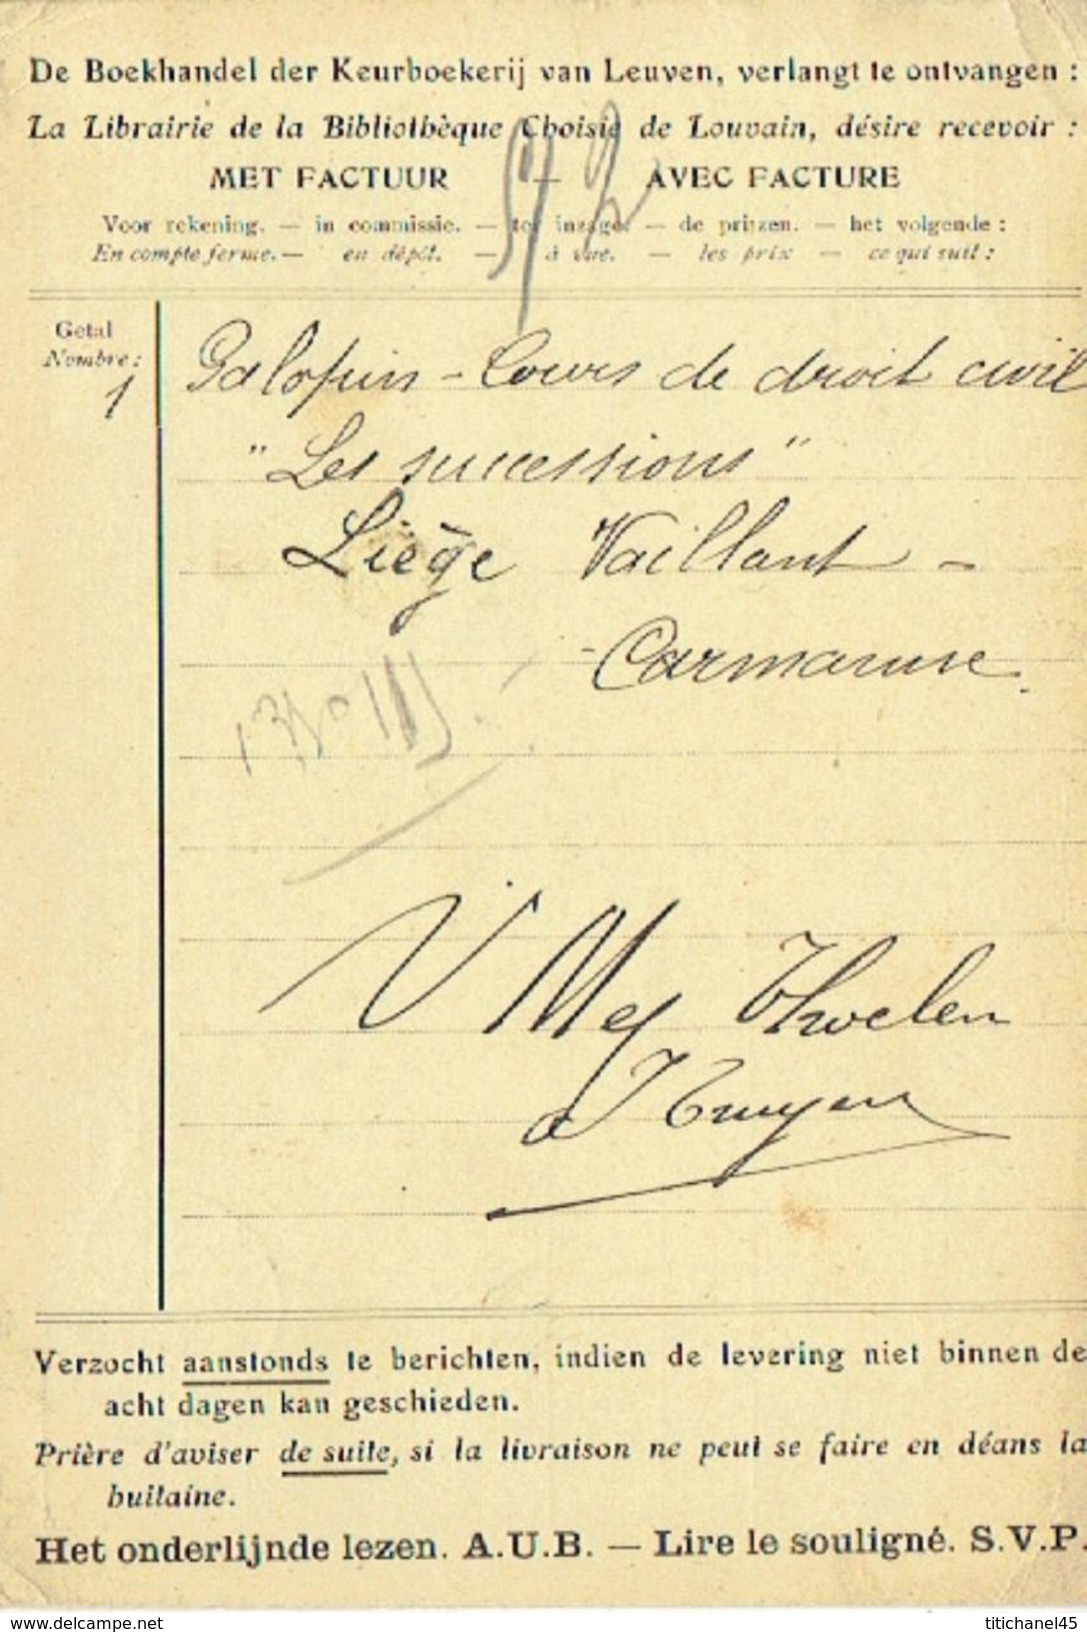 De Boekhandel der Keurboekerij van Leuven, verlangt te ontvangen :
La Librairie de la Bibliothèque Choisie de Louvain, désire recevoir :
MET FACTUUR — AVEC FACTURE
Voor rekening. — in commissie. — ter inzage. — de prijzen. — het volgende :
En compte ferme. — en dépôt. — à vue. — les prix — ce qui suit :
Getal
Nombre :
1 Galopin - Cours de droit civil
"Les successions"
Liège Vaillant -
- Carmanne.
V Mej
à
Verzocht aanstonds te berichten, indien de levering niet binnen de
acht dagen kan geschieden.
Prière d'aviser de suite, si la livraison ne peut se faire en déans la
huitaine.
Het onderlijnde lezen. A.U.B. — Lire le souligné. S.V.P.
www.delcampe.net titichanel45